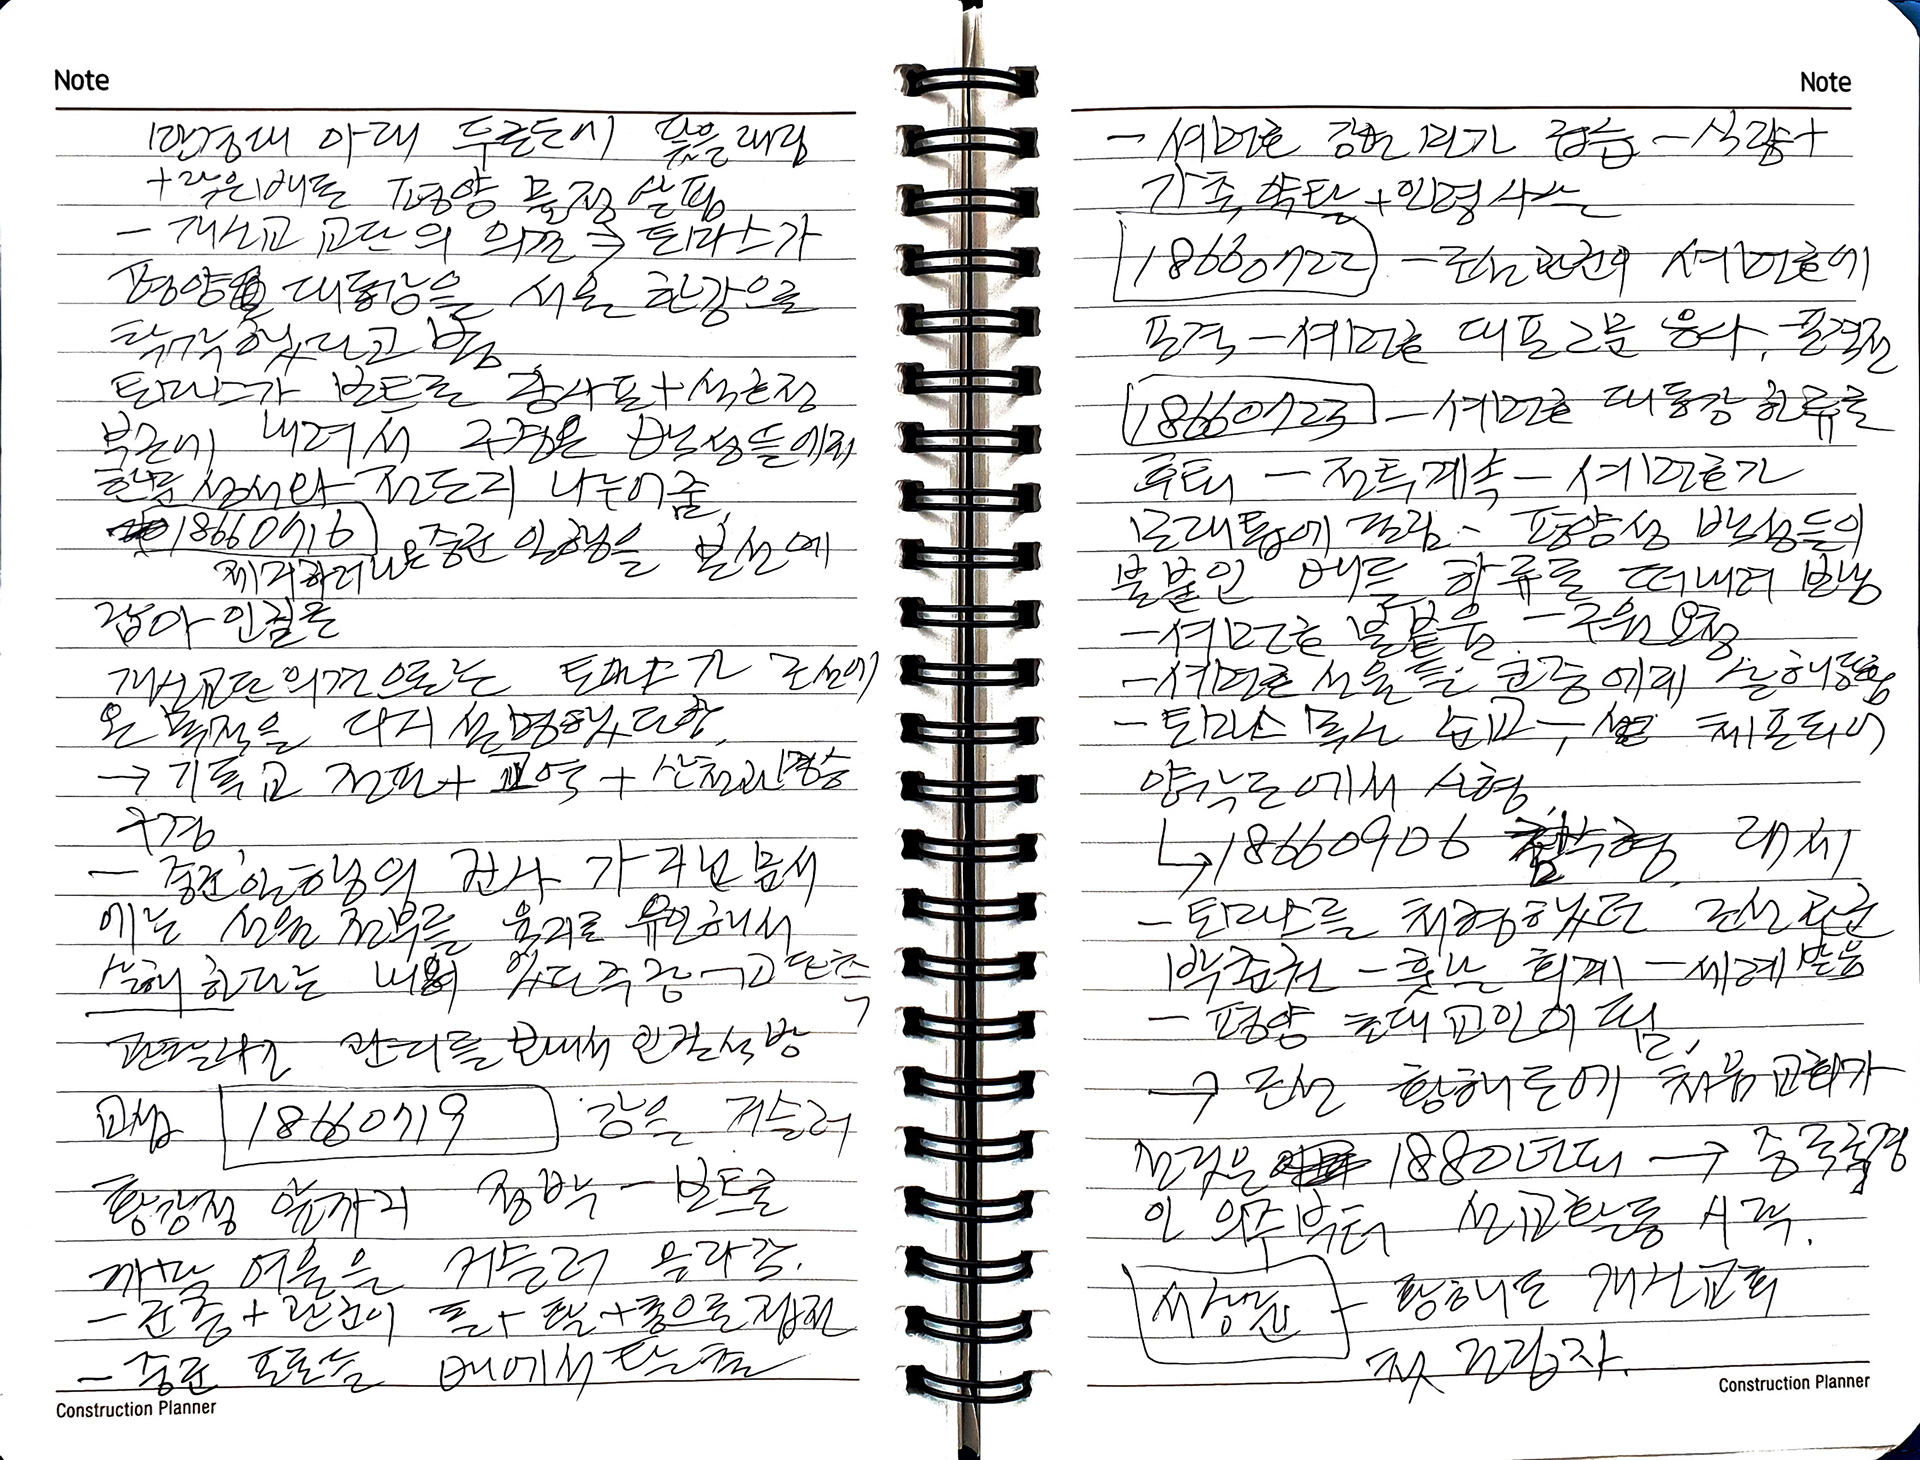 Note
만경대 아래 두로도에 닻을 내림
+ 작은 배로 평양 물정 살핌
- 개신교 교단의 의견 → 토마스가
평양 대동강을 서울 한강으로
착각했다고 봄
토마스가 보트로 장사포+석호정
부근에 내려서 구경온 백성들에게
한문성서와 전도지 나누어줌.
18660716
제지하러 나온 중군 일행을 본선에
잡아 인질로
개신교단 의견으로는 토마스가 조선에
온 목적을 다시 설명했다함.
→ 기독교 전파+교역+산천과 경승
구경
- 중군 일행의 관사가 지닌 문서
에는 선원 전부를 육지로 유인해서
살해한다는 내용이 있다 주장
관찰사가 관리를 보내서 인질석방
교섭 18660719 강을 거슬러
황강정 앞까지 정박 - 보트로
까막 여울을 거슬러 올라감.
- 군중+관군이 돌+활+총으로 접전
- 중군 포로는 배에서 탈출
Construction Planner
Note
- 셔먼호 강변 민가 습 - 식량+
가축 약탈+인명 사는
18660722 - 조선 관군의 셔먼호에
포격 - 셔먼호 대포 2문 응사, 포격전
18660723 - 셔먼호 대동강 하류로
후퇴 - 전투계속 - 셔먼호가
모래톱에 걸림. 평양성 백성들이
불붙인 배를 하류로 떠내려 보냄
- 셔먼호 불붙음 - 구원 요청
- 셔먼호 선원들 군중에게 살해당함
- 토마스 목사 순교 체포되어
양각도에서 사형.
↳ 18660906 참수형, 대씨
- 토마스를 처형했던 조선 관군
박춘권 - 훗날 회개 - 세례 받음
- 평양 초대 교인이 됨.
→ 조선 황해도에 처음 교회가
선것은 1880년대 → 중국국경
인 의주부터 선교활동 시작.
서상륜 - 황해도 개신교회
첫 건립자.
Construction Planner